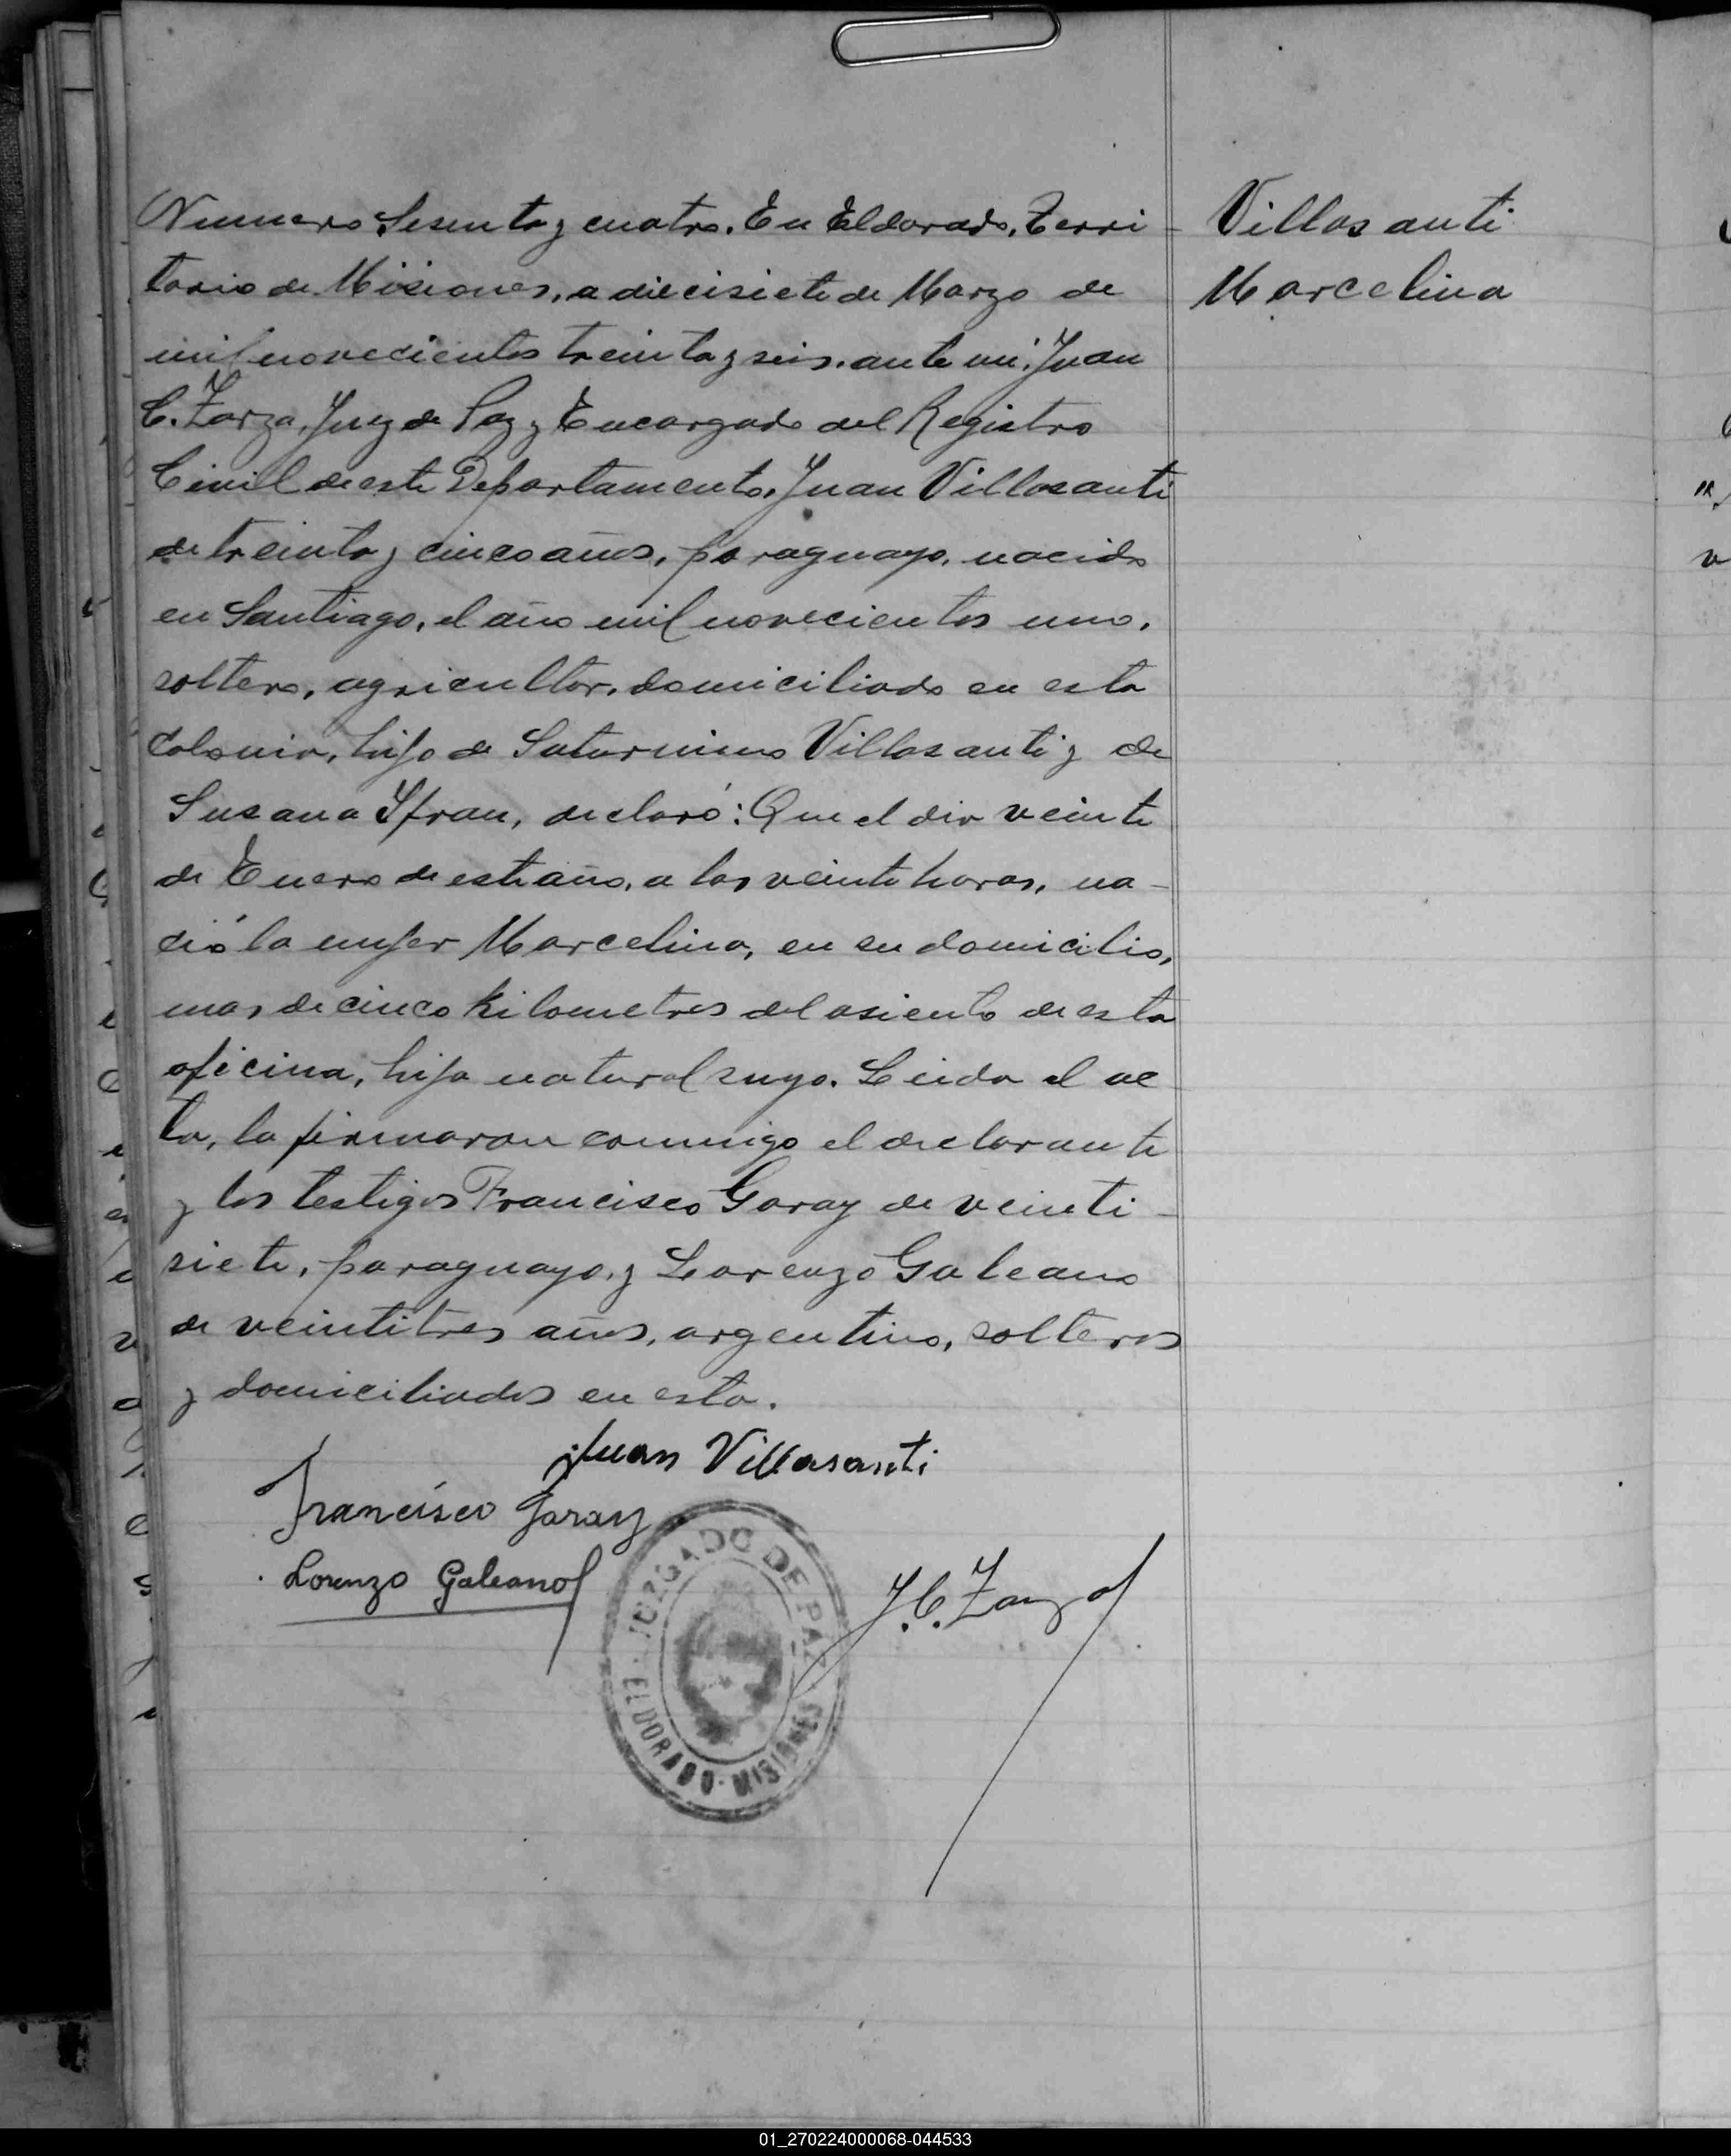 Numero Sesenta y cuatro. En Eldorado, Terri
torio de Misiones, a diecisiete de Marzo de
mil novecientos treinta y seis. ante mi, Juan
C. Zarza, Juez de Paz y Encargado del Registro
Civil de este Departamento, Juan Villasanti
de treinta y cinco años, paraguayo, nacido
en Santiago, el año mil novecientos uno,
soltero, agricultor, domiciliado en esta
Colonia, hijo de Saturnino Villasanti y de
Susana Yfran, declaró: Que el dia veinte
de Enero de este año, a las veinte horas, na-
ció la mujer Marcelina, en su domicilio,
mas de cinco kilometros del asiento de esta
oficina, hija natural suya. Leida el ac
ta, la firmaron conmigo el declarante
y los testigos Francisco Garay de veinti-
siete, paraguayo, y Lorenzo Galeano
de veintitres años, argentino, solteros
y domiciliados en esta.
Juan Villasanti
Francisco Garay
Lorenzo Galeano
J. C. Zarza
JUZGADO DE PAZ
ELDORADO - MISIONES
Villasanti
Marcelina
01_270224000068-044533